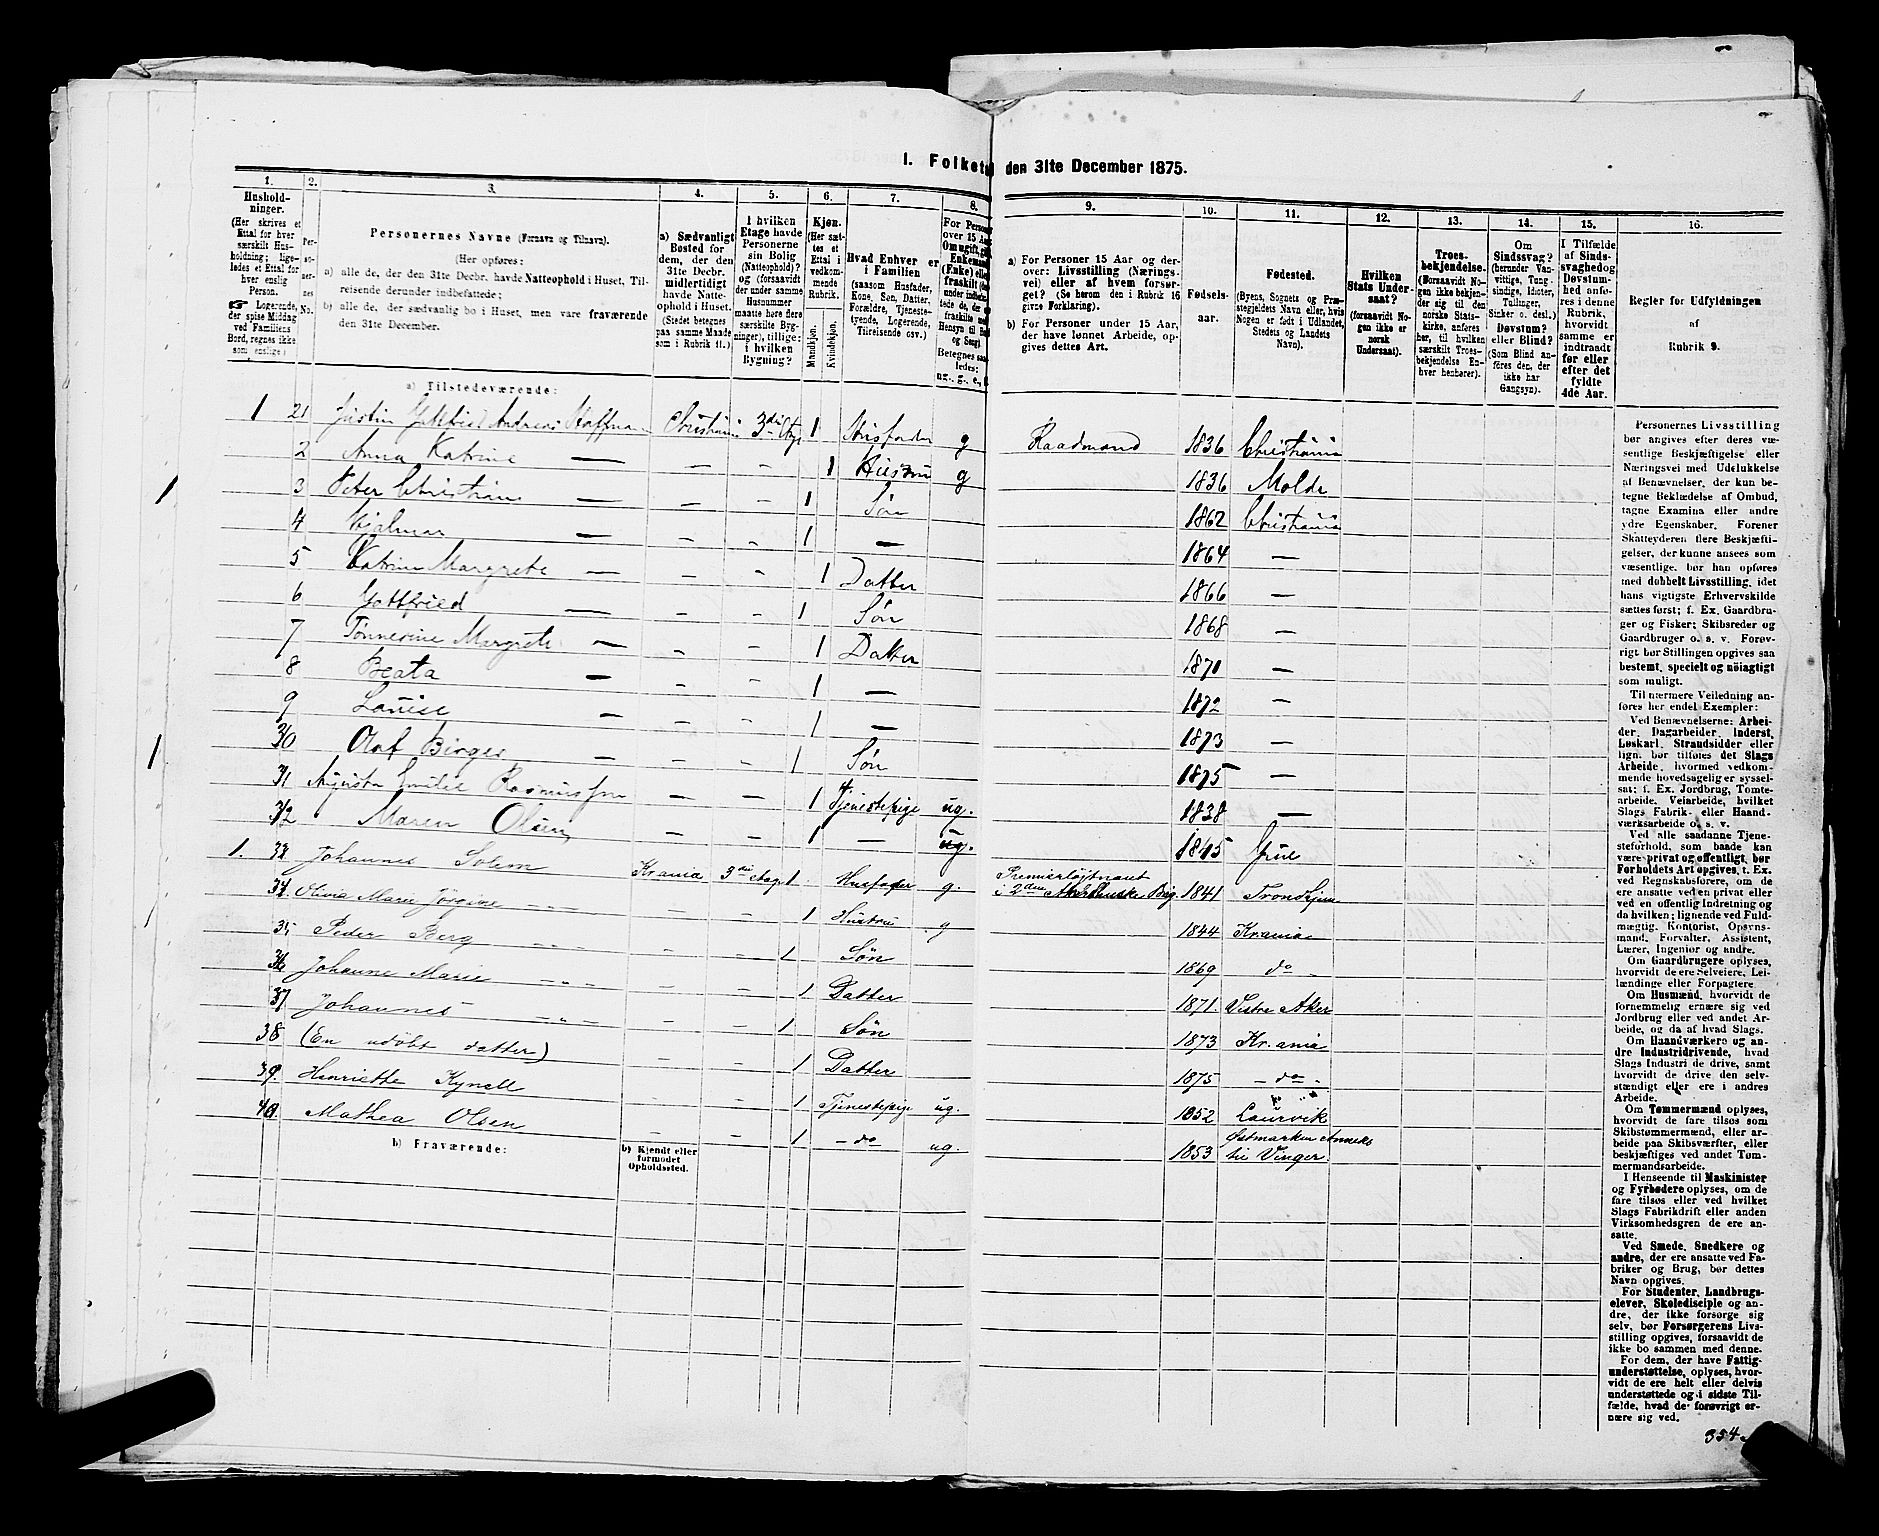 I. Folketæ
den 31te December 1875.
1.
Hushold-
ninger.
(Her skrives et
Ettal for hver
særskilt Hus-
holdning; lige-
ledes et Ettal for
hver enslig
Person.
☛ Logerende,
der spise Middag
ved Familiens
Bord, regnes ikke
som enslige.)
2.
Per-
so-
ner-
nes
No.
3.
Personernes Navne (Fornavn og Tilnavn).
(Her opføres:
a) alle de, der den 31te Decbr. havde Natteophold i Huset, Til-
reisende derunder indbefattede;
b) alle de, der sædvanlig bo i Huset, men vare fraværende
den 31te December.
4.
a) Sædvanligt
Bosted for
dem, der den
31te Decbr.
midlertidigt
havde Natte-
ophold i Huset.
(Stedet betegnes
paa samme Maade
som i Rubrik 11.)
5.
I hvilken
Etage havde
Personerne
sin Bolig
(Natteophold)?
og (forsaavidt
der under samme
Husnummer
maatte høre flere
særskilte Byg-
ninger), tillige:
i hvilken
Bygning?
6.
Kjøn.
(Her sæt-
tes et
Ettal i
vedkom-
mende
Rubrik.
Mandkjøn.
Kvindekjøn.
7.
Hvad Enhver er
i Familien
(saasom Husfader,
Kone, Søn, Datter,
Forældre, Tjeneste-
tyende, Logerende,
Tilreisende osv.)
8.
For Person
over 15 Aar
Om ugift, gift
Enkemand
(Enke) eller
fraskilt
Betegnes saa-
ledes:
ug., g., e.,
9.
a) For Personer 15 Aar og der-
over: Livsstilling (Nærings-
vei) eller af hvem forsør-
get? (Se herom den i Rubrik 16
givne Forklaring).
b) For Personer under 15 Aar,
der have lønnet Arbeide, op-
gives dettes Art.
10.
Fødsels-
aar.
11.
Fødested.
(Byens, Sognets og Præ-
stegjeldets Navn eller, hvis
Nogen er født i Udlandet,
Stedets og Landets
Navn).
12.
Hvilken
Stats Under-
saat?
(forsaavidt No-
gen ikke er
norsk
Undersaat).
13.
Troes-
bekjendelse.
(Forsaavidt Nogen
ikke bekjen-
der sig til den
norske Stats-
kirke, anføres
her, til hvilken
særskilt Troes-
bekjendelse En-
hver henhører).
14.
Om
Sindssvag?
(herunder Van-
vittige, Tung-
sindige, Idioter,
Tullinger,
Sinker o. desl.)
Døvstum?
eller Blind?
(Som Blind an-
føres den, der
ikke har
Gangsyn).
15.
I Tilfælde
af Sinds-
svaghed og
Døvstum-
hed anfø-
res i denne
Rubrik,
hvorvidt
samme er
indtraadt
før eller
efter det
fyldte
4de Aar.
16.
Regler for Udfyldningen
af
Rubrik 9.
a) Tilstedeværende:
1 21 Justin Gottfried Andreas Hoffman Christiania 3die Etage 1 Husfader g Raadmand 1836 Christiania
2 Anna Katrine — — — 1 Hustru g 1836 Molde
3 Peter Christian — — — 1 Søn 1862 Christiania
4 Hjalmar — — — 1 — 1864 —
5 Katrine Margrete — — — 1 Datter 1866 —
6 Gottfried — — — 1 Søn 1868 —
7 Tønnerine Margrete — — — 1 Datter 1870 —
8 Beata — — — 1 — 1872 —
9 Louise — — — 1 — 1873 —
30 Olaf Birger — — — 1 Søn 1875 —
31 Augusta Emilie Rasmussen — — 1 Tjenestepige ug. 1838 —
32 Maren Olsen — — 1 — ug. 1845 Grue
1. 33 Johannes Solem Krania 3die etage 1 Husfader g. Premierløjtnant i 2den Akershuske Brig. 1841 Trondhjem
34 Olivia Marie Jørgine — „ — — 1 Hustru g 1844 Krania
35 Peder Berg — „ — — 1 Søn 1869 do
36 Johanne Marie — „ — — 1 Datter 1871. Vestre Aker
37 Johannes — „ — — 1 Søn 1873 Krania
38 (En udøbt datter) — — 1 Datter 1875 — do —
39. Henriette Kynell — — 1 Tjenestepige ug. 1852 Laurvik
40. Mathea Olsen — — 1 — do ug. 1853 Østmarken Anneks til Vinger
b) Fraværende:
b) Kjendt eller
formodet
Opholdssted.
Personernes Livsstilling
bør angives efter deres væ-
sentlige Beskjæftigelse eller
Næringsvei med Udelukkelse
af Benævnelser, der kun be-
tegne Beklædelse af Ombud,
tagne Examina eller andre
ydre Egenskaber. Forener
Skatteyderen flere Beskjæfti-
gelser, der kunne ansees som
væsentlige, bør han opføres
med dobbelt Livsstilling, idet
hans vigtigste Erhvervskilde
sættes først; f. Ex. Gaardbru-
ger og Fisker; Skibsreder og
Gaardbruger o. s. v. Forøv-
rigt bør Stillingen opgives saa
bestemt, specielt og nøiagtigt
som muligt.
Til nærmere Veiledning an-
føres her endel Exempler:
Ved Benævnelserne: Arbei-
der, Dagarbeider, Inderst,
Løskarl, Strandsidder eller
lign. bør tilføres det Slags
Arbeide, hvormed vedkom-
mende hovedsagelig er syssel-
sat; f. Ex. Jordbrug, Tomte-
arbeide, Veiarbeide, hvilket
Slags Fabrik- eller Haand-
værksarbeide o. s. v.
Ved alle saadanne Tjene-
steforhold, som baade kan
være privat og offentlig, bør
Forholdets Art opgives, t. Ex.
ved Regnskabsførere, om de
ere ansatte ved en privat eller
ved en offentlig Indretning og
da hvilken; lignende ved Fuld-
mægtig, Kontorist, Opsyns-
mand, Forvalter, Assistent,
Lærer, Ingeniør og andre.
Om Gaardbrugere oplyses,
hvorvidt de ere Selveiere, Lei-
lændinge eller Forpagtere.
Om Husmænd, hvorvidt de
fornemmelig ernære sig ved
Jordbrug eller ved andet Ar-
beide, og da af hvad Slags.
Om Haandværkere og an-
dre Industridrivende, hvad
Slags Industri de drive, samt
hvorvidt de drive den selv-
stændigt eller ere i andres
Arbeide.
Om Tømmermænd oplyses,
hvorvidt de fare tilsøs som
Skibstømmermænd, eller ar-
beide paa Skibsværfter, eller
beskjæftiges ved andet Tøm-
mermandsarbeide.
I Henseende til Maskinister
og Fyrbødere oplyses, om de
fare tilsøs eller ved hvilket
Slags Fabrikdrift eller anden
Virksomhedsgren de ere an-
satte.
Ved Smede, Snedkere og
andre, der ere ansatte ved Fa-
briker og Brug, bør dettes
Navn opgives.
For Studenter, Landbrugs-
elever, Skoledisciple og an-
dre, der ikke forsørge sig
selv, bør Forsørgerens Livs-
stilling opgives, forsaavidt de
ikke bo sammen med denne.
For dem, der have Fattig-
understøttelse, oplyses, hvor-
vidt de ere helt eller delvis
understøttede og i sidste Til-
fælde, hvad de forøvrigt er-
nære sig ved.
354